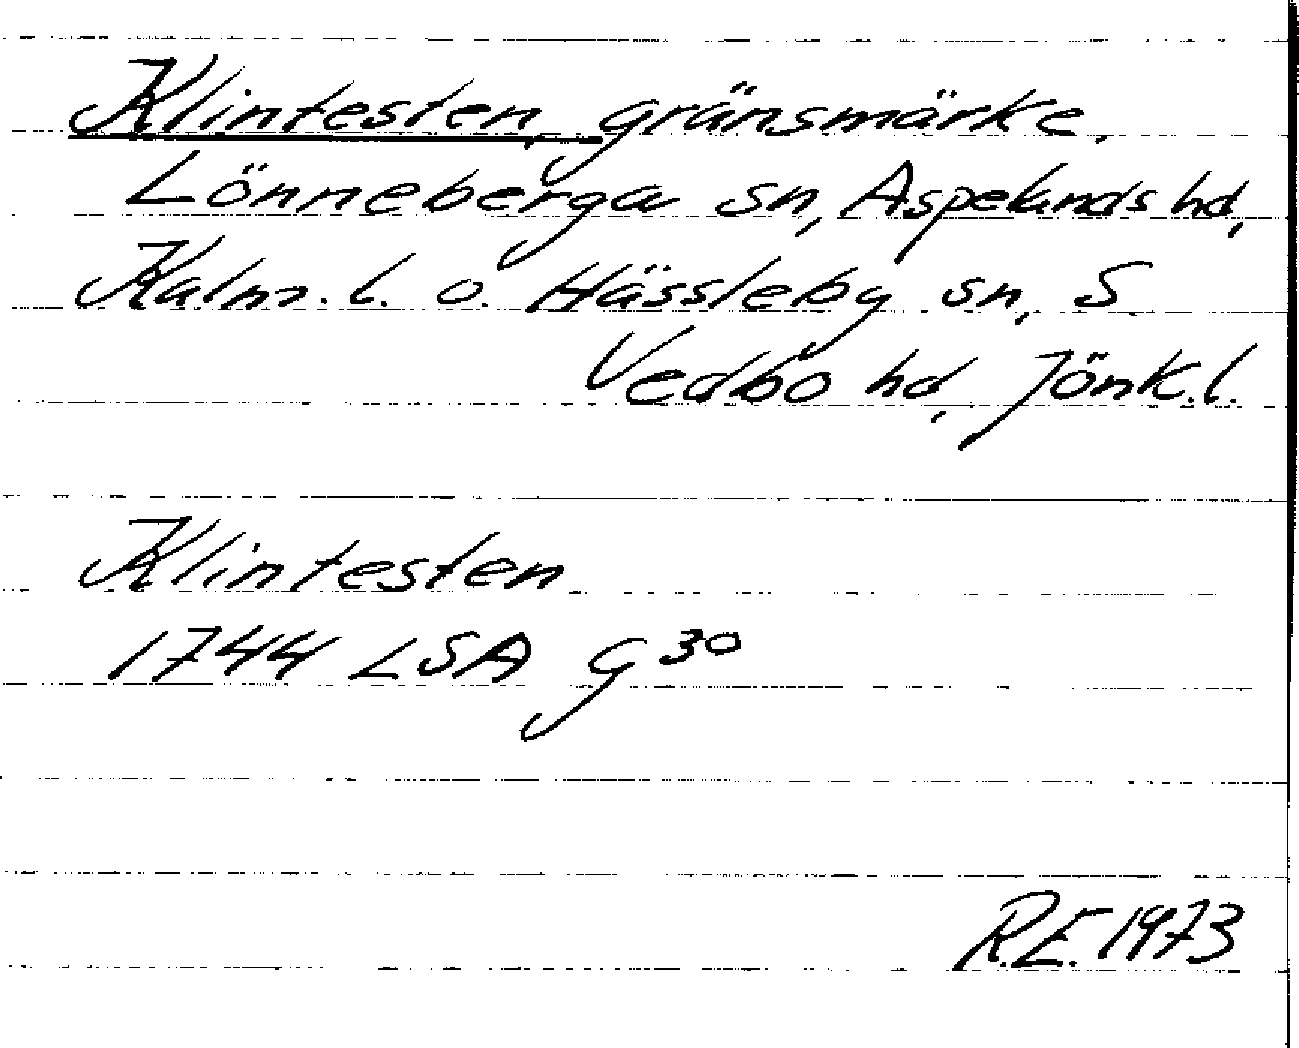 Klintesten, gränsmärke,
Lönneberga sn, Aspelands hd,
Kalm. l. o. Hässleby sn, S
Vedbo hd, Jönk.l.
Klintesten
1744 LSA G 30
R.E. 1973